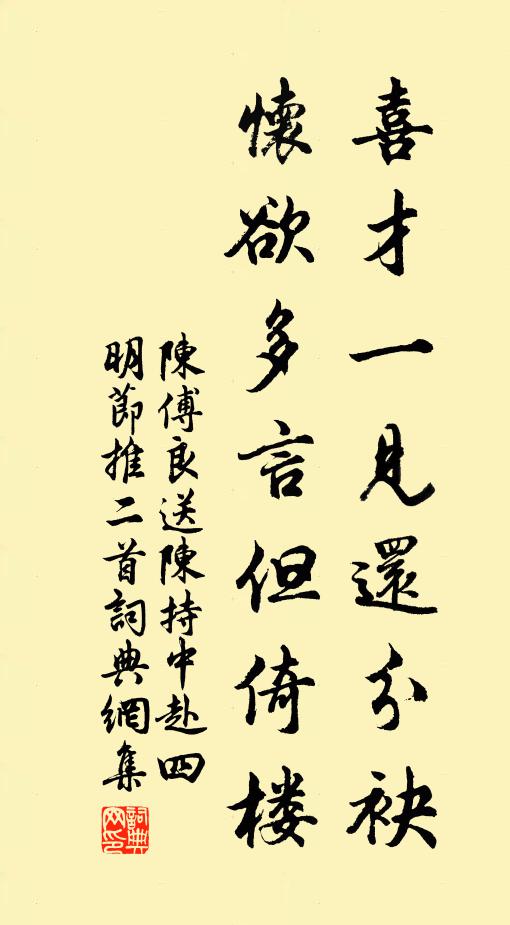 喜才一見還分袂
懷欲多言但倚楼
陳傅良送陳持中赴四
明節推二首詞典網集
詞典網印